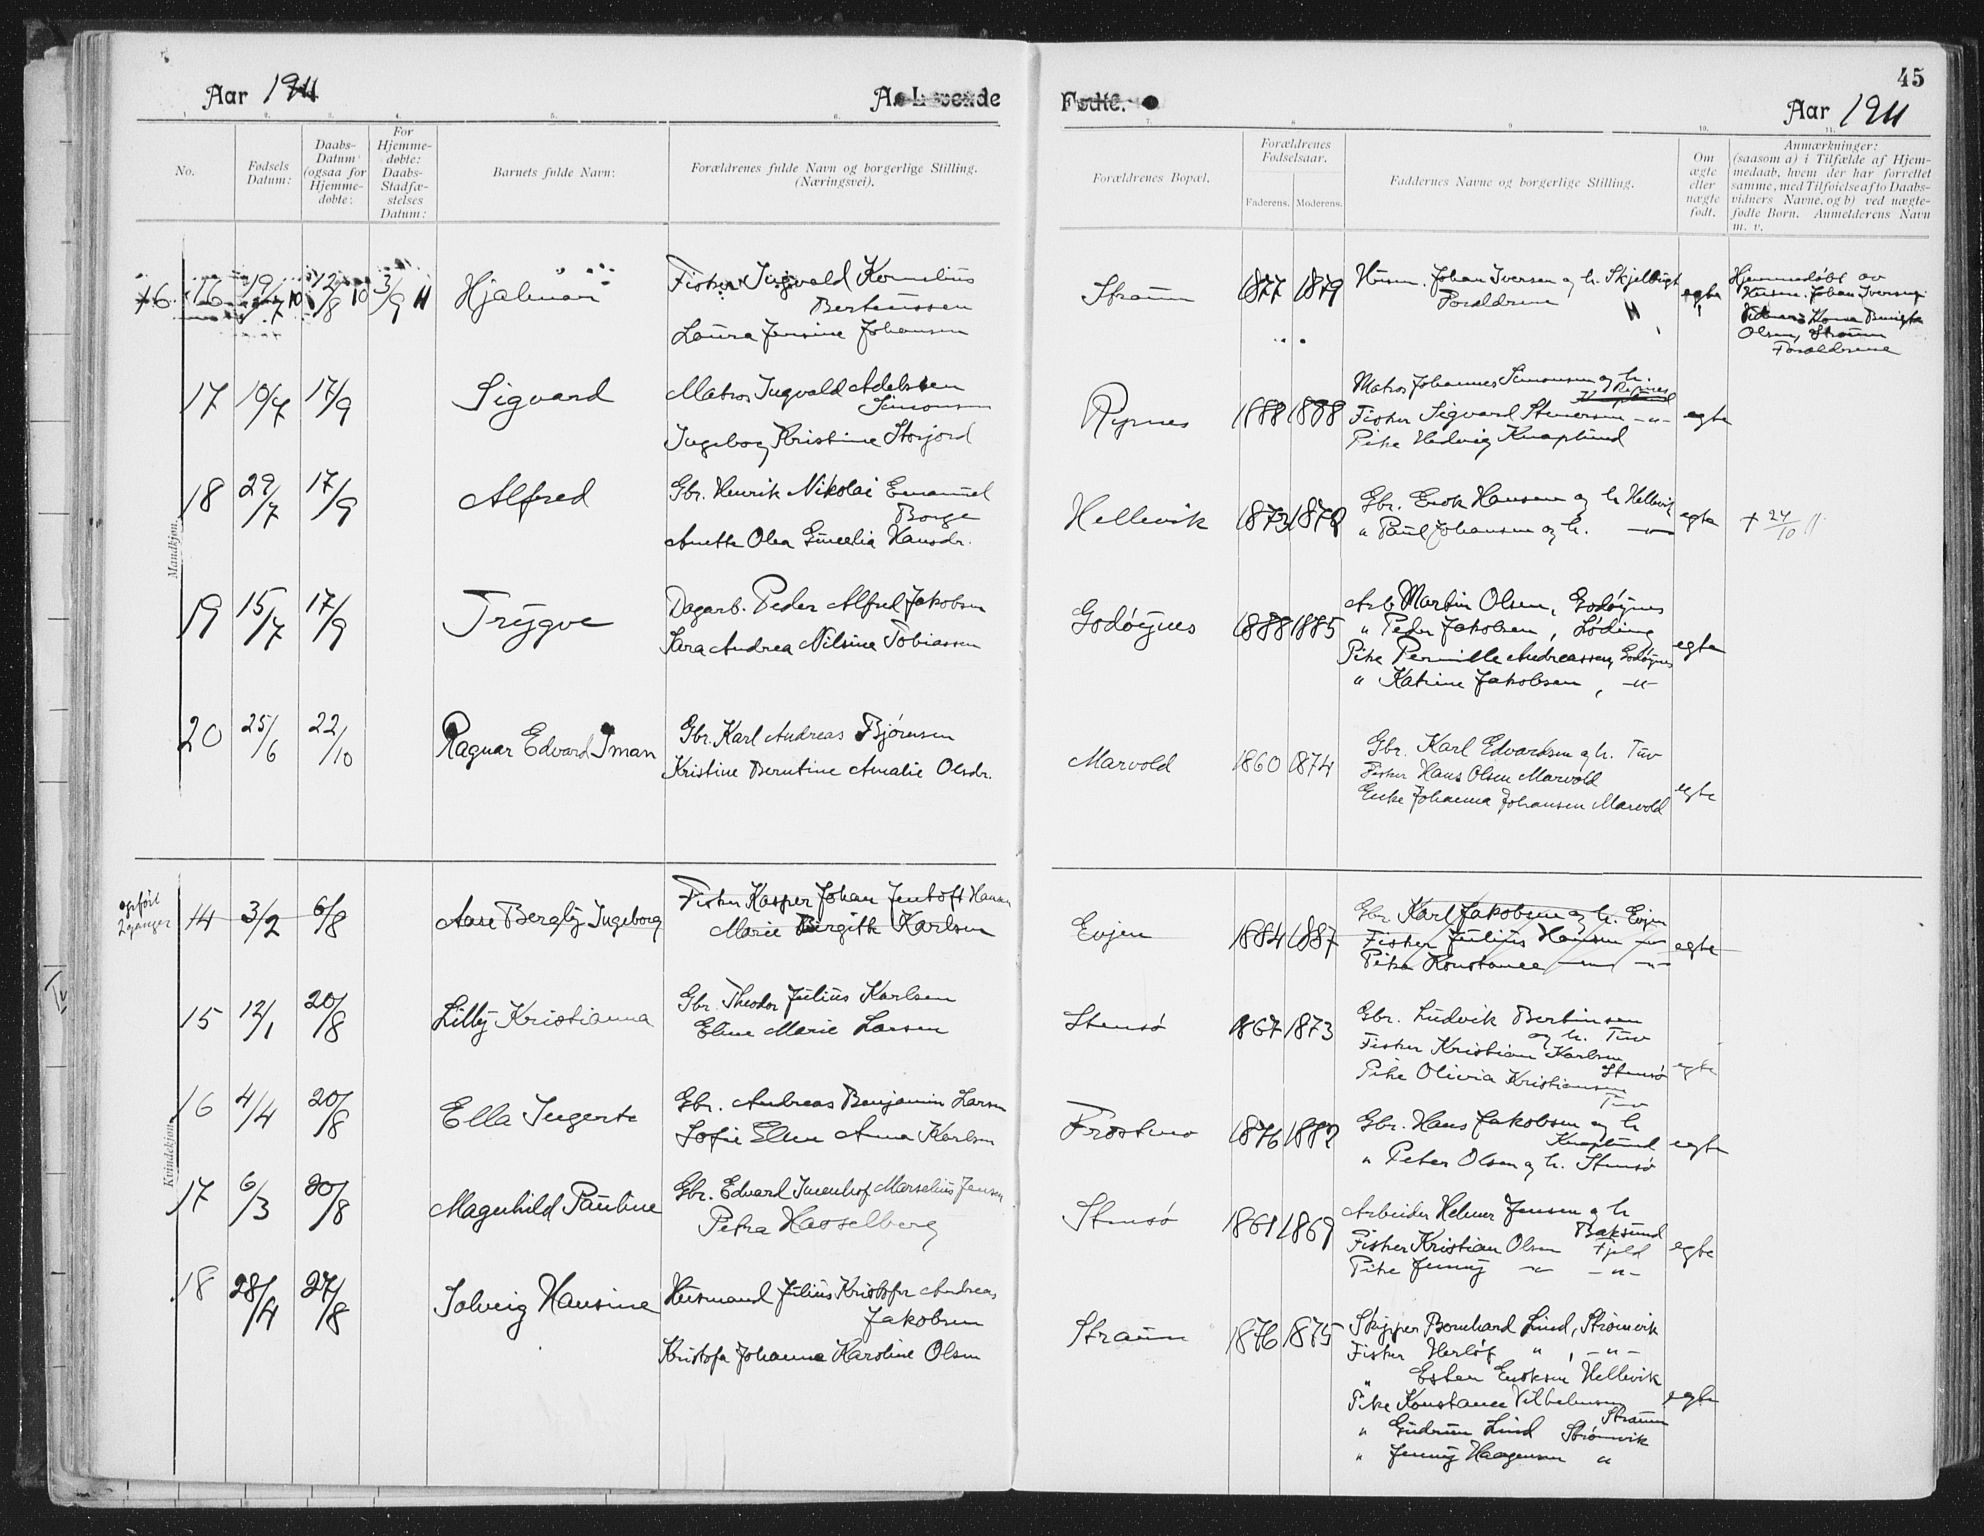 45
Aar 1911
A. Levende
Fødte.
Aar 1911
1.
2.
3.
4.
5.
6.
7.
8
9
10.
11.
No.
Fødsels
Datum:
Daabs-
Datum
(ogsaa for
Hjemme-
døbte:
For
Hjemme-
døbte:
Daabs-
Stadfæ-
stelses
Datum:
Barnets fulde Navn:
Forældrenes fulde Navn og borgerlige Stilling.
(Næringsvei).
Forældrenes Bopæl.
Forældrenes
Fødselsaar.
Faderens.
Moderens.
Faddernes Navne og borgerlige Stilling.
Om
ægte
eller
uægte
født.
Anmærkninger:
(saasom a) i Tilfælde af Hjem-
medaab, hvem der har forrettet
samme, med Tilføielse af to Daabs-
vidners Navne, og b) ved uægte-
fødte Børn. Anmelderens Navn
m. v.
Mandkjøn.
16 19/7 10 12/8 10 3/9 11 Hjalmar
Fisker Ingvald Kornelius
Berteussen
Laura Jensine Johansen
Straum 1877 1879
Husm. Johan Iversen og h. Skjelbugt
Forældrene
egte
Hjemmedøbt av
Husm. Johan Iversen
Olsen, Straum
Forældrene
17 10/7 17/9 Sigvard
Matros Ingvald Adelsten
Simonsen
Ingeborg Kristine Storjord
Rypnes 1888 1888
Matros Johannes Simonsen og h.
Rypnes
Fisker Sigvard Stenersen -"-
Pike Hedvig Knaplund
egte
18 29/7 17/9 Alfred
Gbr. Henrik Nikolai Emanuel
Borge
Anette Olea Emelia Hansdr.
Hellevik 1873 1878
Gbr. Enok Hansen og h. Hellevik
" Paul Johansen og h. -"-
egte
+ 24/10 11
19 15/7 17/9 Trygve
Dagarb. Peder Alfred Jakobsen
Sara Andrea Nilsine Tobiassen
Godøynes 1888 1885
Arb Martin Olsen, Godøynes
" Peder Jakobsen, Løding
Pike Pernille Andreassen, Godøynes
" Katrine Jakobsen, -"-
egte
20 25/6 22/10 Ragnar Edvard Iman
Gbr. Karl Andreas Bjørnsen
Kristine Berntine Amalie Olsdr.
Marvold 1860 1874
Gbr. Karl Edvardsen og h. Tuv
Fisker Hans Olsen Marvold
Enke Johanna Johansen Marvold
egte
Kvindekjøn.
opført
2 ganger
14 3/2 6/8 Aase Bergljŏt Ingeborg
Fisker Kasper Johan Jentoft Hansen
Marie Birgitte Karlsen
Evjen 1884 1887
Gbr Karl Jakobsen og h. Evjen
Fisker Julius Hansen -"-
Pike Konstance -"- -"-
egte
15 12/1 20/8 Lilly Kristianna
Gbr. Theodor Julius Karlsen
Eline Marie Larsen
Stensø 1867 1873
Gbr. Ludvik Bertinsen
og h. Tuv
Fisker Kristian Karlsen
Stensø
Pike Olivia Kristiansen
Tuv
egte
16 4/4 20/8 Ella Ingerte
Gbr. Andreas Benjamin Larsen
Sofie Elen Anna Karlsen
Frostmo 1876 1882
Gbr. Hans Jakobsen og h
Knaplund
" Peter Olsen og h. Stensø
egte
17 6/3 20/8 Magnhild Pauline
Gbr. Edvard Imenhof Marselius Jensen
Petra Hasselberg
Stensø 1861 1869
Arbeider Helmer Jensen og h
Baksund
Fisker Kristian Olsen Fjeld
Pike Jenny -"- -"-
egte
18 28/4 27/8 Solveig Hansine
Husmand Julius Kristofer Andreas
Jakobsen
Kristofa Johanna Karoline Olsen
Straum 1876 1875
Skipper Bernhard Lind, Strømvik
Fisker Herløf " , -"-
" Esten Enoksen Hellevik
Pike Konstance Vilhelmsen
Straum
" Gudrun Lind Strømvik
" Jenny Haagensen "
egte